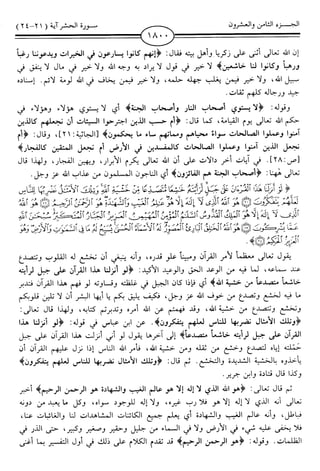 الجزء الثامن والعشرون
١٨٠٠
سورة الحشر آية (٢١-٢٤)
إن الله تعالى أثنى على زكريا وأهل بيته فقال: ﴿إنهم كانوا يسارعون في الخيرات ويدعوننا رغباً
ورهباً وكانوا لنا خاشعين﴾ لا خير في قول لا يراد به وجه الله ولا خير في مال لا ينفق في
سبيل الله، ولا خير فيمن يغلب جهله حلمه، ولا خير فيمن يخاف في الله لومة لائم. إسناده
جيد ورجاله كلهم ثقات.
وقوله: ﴿لا يستوي أصحاب النار وأصحاب الجنة﴾ أي لا يستوي هؤلاء وهؤلاء في
حكم الله تعالى يوم القيامة، كما قال: ﴿أم حسب الذين اجترحوا السيئات أن نجعلهم كالذين
آمنوا وعملوا الصالحات سواءً محياهم ومماتهم ساء ما يحكمون﴾ [الجاثية: ٢١]، وقال: ﴿أم
نجعل الذين آمنوا وعملوا الصالحات كالمفسدين في الأرض أم نجعل المتقين كالفجار﴾
[ص: ٢٨]. في آيات أخر دالات على أن الله تعالى يكرم الأبرار، ويهين الفجار، ولهذا قال
تعالى ههنا: ﴿أصحاب الجنة هم الفائزون﴾ أي الناجون المسلمون من عذاب الله عز وجل.
يقول تعالى معظماً لأمر القرآن ومبيناً علو قدره، وأنه ينبغي أن تخشع له القلوب وتتصدع
عند سماعه، لما فيه من الوعد الحق والوعيد الأكيد: ﴿لو أنزلنا هذا القرآن على جبل لرأيته
خاشعاً متصدعاً من خشية الله﴾ أي فإذا كان الجبل في غلظته وقساوته لو فهم هذا القرآن فتدبر
ما فيه لخشع وتصدع من خوف الله عز وجل، فكيف يليق بكم يا أيها البشر أن لا تلين قلوبكم
وتخشع وتتصدع من خشية الله، وقد فهمتم عن الله أمره وتدبرتم كتابه، ولهذا قال تعالى:
﴿وتلك الأمثال نضربها للناس لعلهم يتفكرون﴾. عن ابن عباس في قوله: ﴿لو أنزلنا هذا
القرآن على جبل لرأيته خاشعاً متصدعاً﴾ إلى آخرها يقول لو أني أنزلت هذا القرآن على جبل
حمَّلته إياه لتصدع وخشع من ثقله ومن خشية الله، فأمر الله الناس إذا نزل عليهم القرآن أن
يأخذوه بالخشية الشديدة والتخشع. ثم قال: ﴿وتلك الأمثال نضربها للناس لعلهم يتفكرون﴾
وكذا قال قتادة وابن جرير.
ثم قال تعالى: ﴿هو الله الذي لا إله إلا هو عالم الغيب والشهادة هو الرحمن الرحيم﴾ أخبر
تعالى أنه الذي لا إله إلا هو فلا رب غيره، ولا إله للوجود سواه، وكل ما يعبد من دونه
فباطل، وأنه عالم الغيب والشهادة أي يعلم جميع الكائنات المشاهدات لنا والغائبات عنا،
فلا يخفى عليه شيء في الأرض ولا في السماء من جليل وحقير وصغير وكبير، حتى الذر في
الظلمات. وقوله: ﴿هو الرحمن الرحيم﴾ قد تقدم الكلام على ذلك في أول التفسير بما أغنى